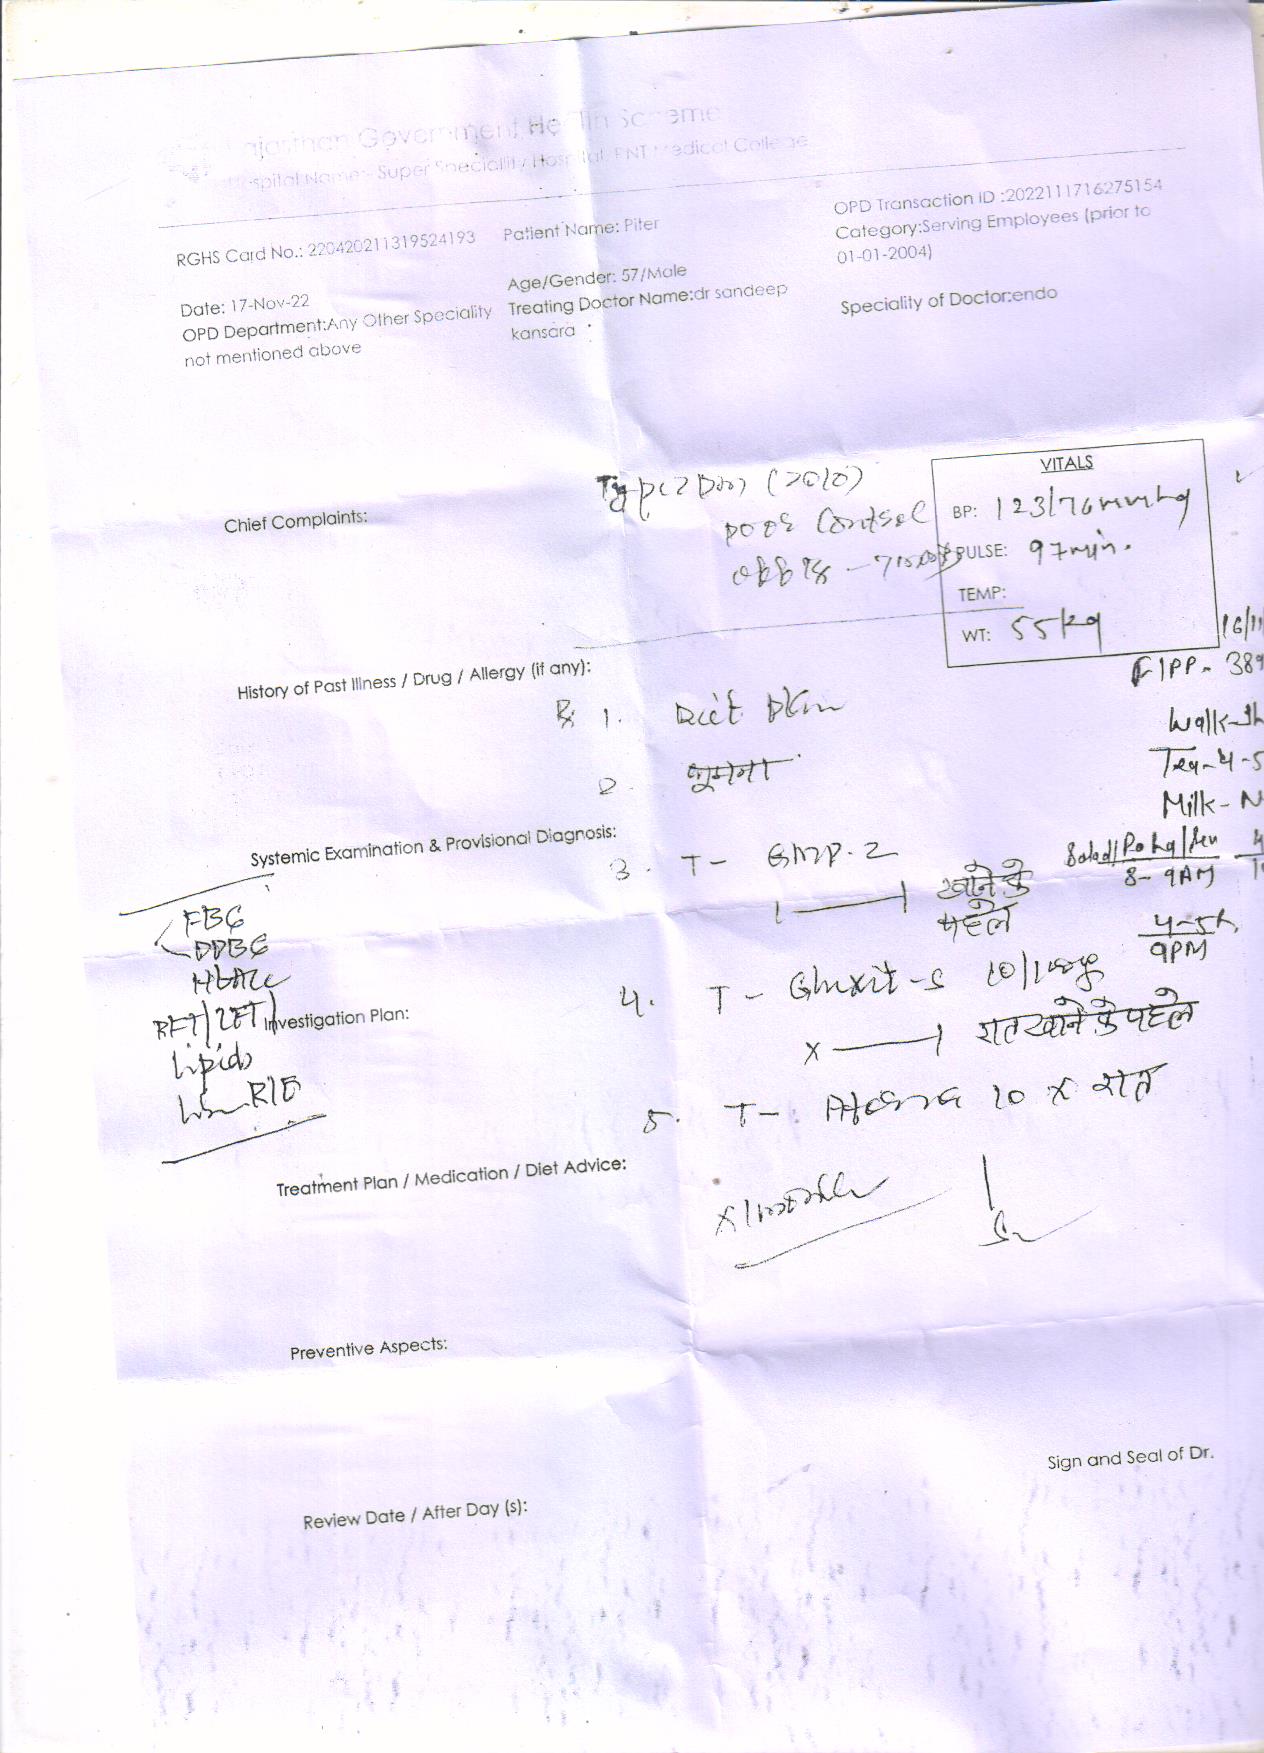 Rajasthan Government Health Scheme
Hospital Name:- Super Speciallity Hospital, RNT Medical College
RGHS Card No.: 220420211319524193
Patient Name: Piter
OPD Transaction ID :2022111716275154
Category:Serving Employees (prior to
01-01-2004)
Date: 17-Nov-22
Age/Gender: 57/Male
OPD Department:Any Other Speciality
not mentioned above
Treating Doctor Name:dr sandeep
kansara
Speciality of Doctor:endo
VITALS
BP: 123/76mmhg
PULSE: 97min.
TEMP:
WT: 55kg
Chief Complaints:
Type 2 DM (2010)
poor control
16/11
F/PP- 389
History of Past Illness / Drug / Allergy (if any):
Rx 1. Diet plan
Walk-
2. घूमना
Tea-4-5
Milk- N
Systemic Examination & Provisional Diagnosis:
3. T- GMP-2
Salad/Poha/
8-9AM
खाने के
पहले
4-5
9PM
FBG
PPBG
HbA1c
RFT/LFT
Lipids
R/E
Investigation Plan:
4. T- Gluxit-S 10/100mg
x रात खाने के पहले
5. T- 10 x रात
Treatment Plan / Medication / Diet Advice:
x 1 month
Preventive Aspects:
Sign and Seal of Dr.
Review Date / After Day (s):